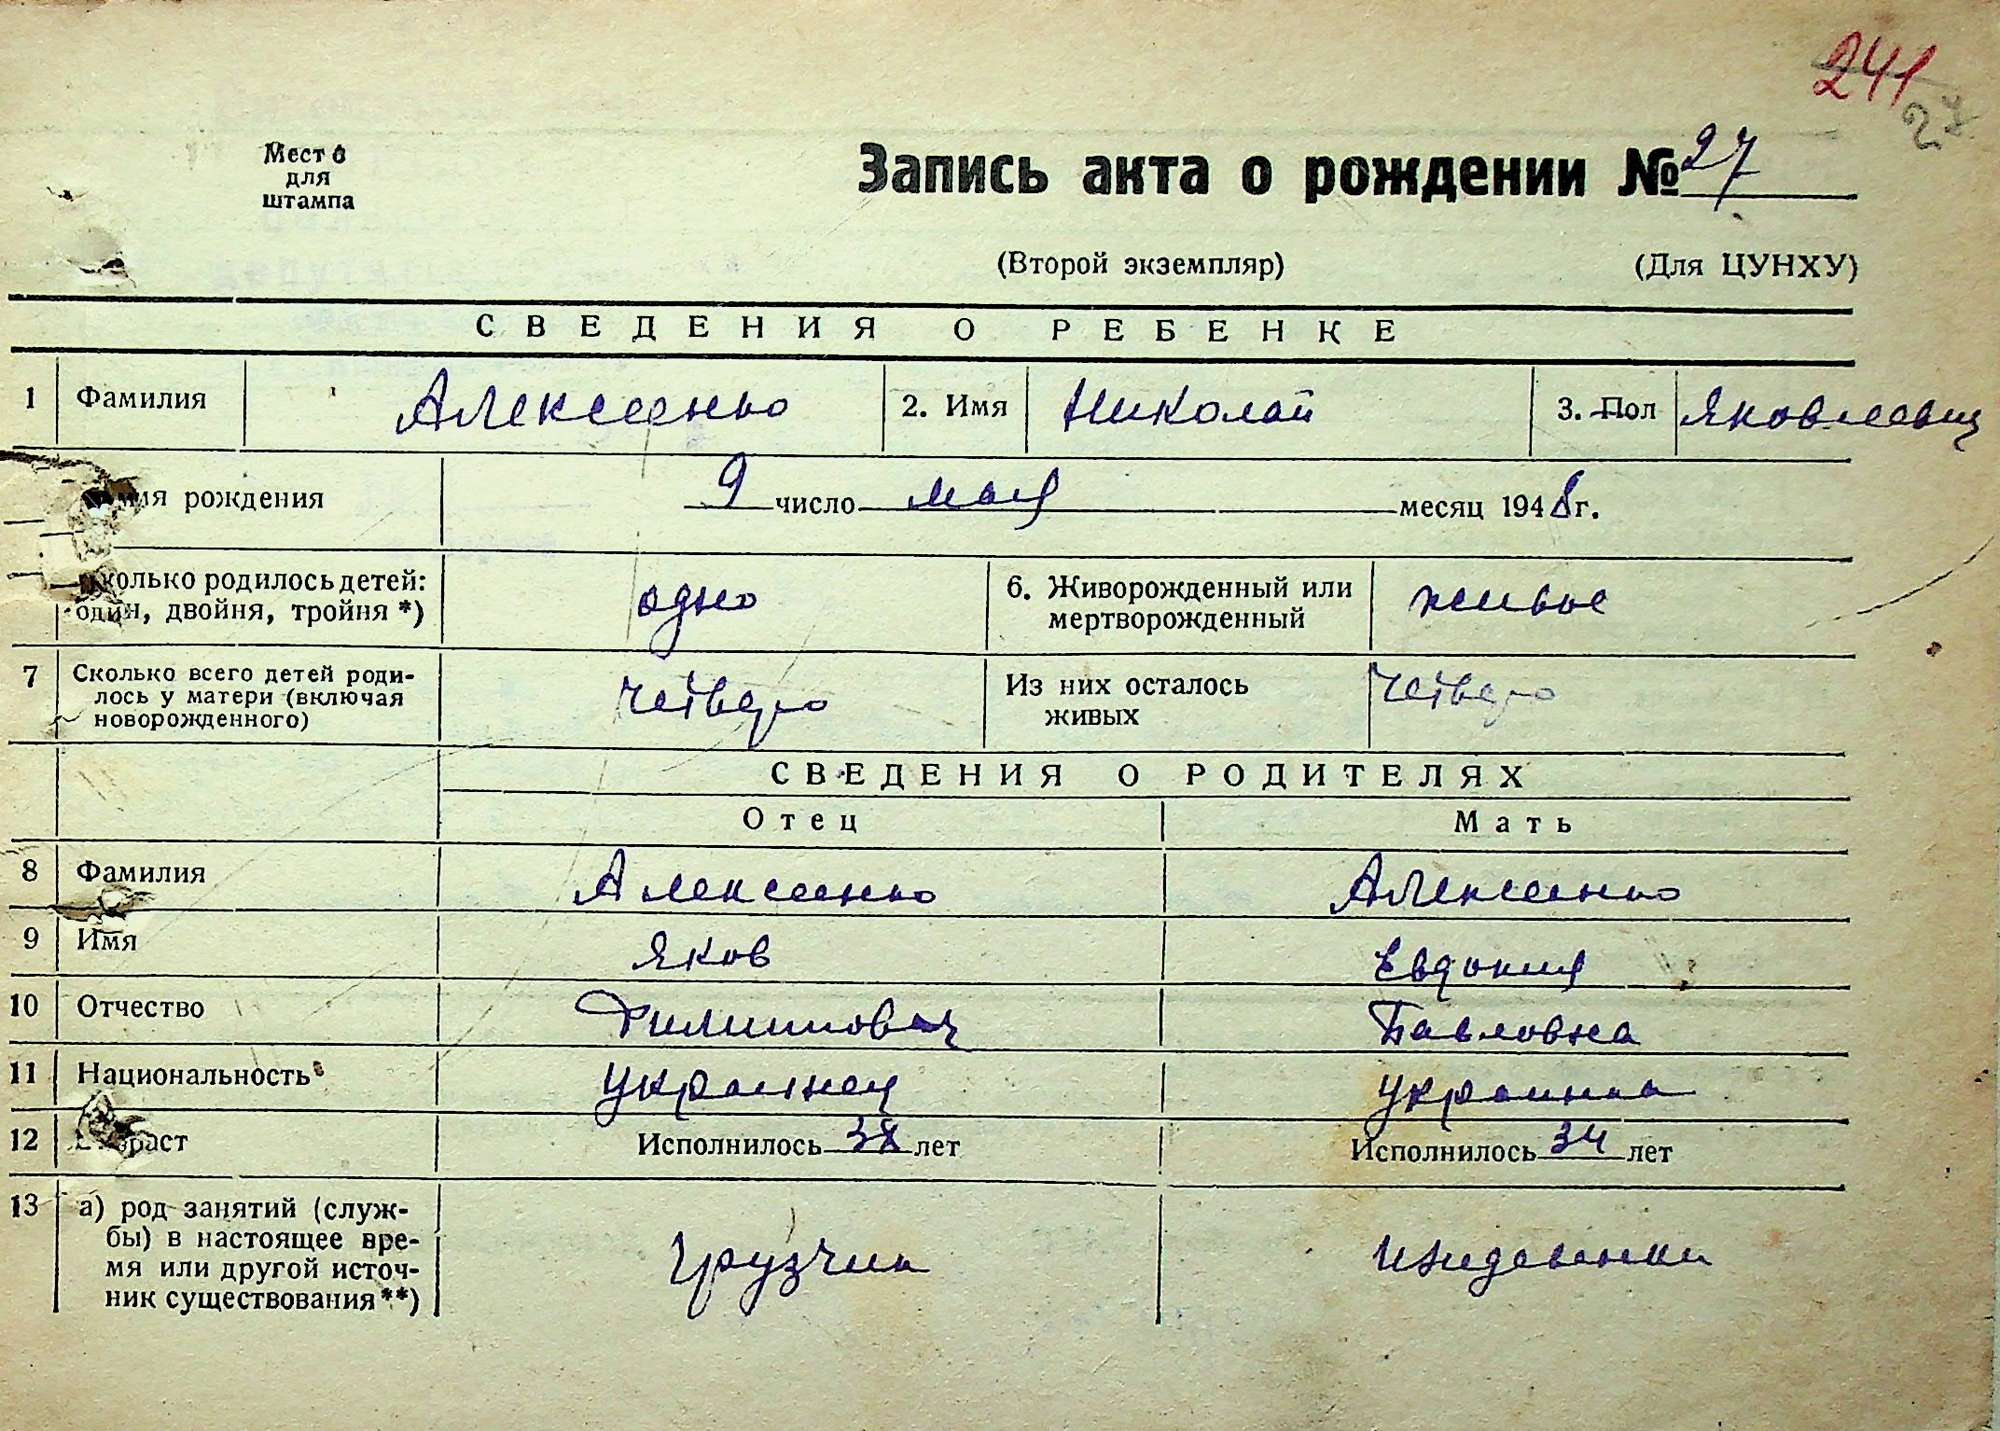 241
27
Место
для
штампа
Запись акта о рождении № 27
(Второй экземпляр) (Для ЦУНХУ)
СВЕДЕНИЯ О РЕБЕНКЕ
1 Фамилия Алексеенко 2. Имя Николай 3. Пол Яковлевич
рождения 9 число мая месяц 1948 г.
сколько родилось детей:
один, двойня, тройня *) одно 6. Живорожденный или
мертворожденный живые
7 Сколько всего детей роди-
лось у матери (включая
новорожденного) четверо Из них осталось
живых четверо
СВЕДЕНИЯ О РОДИТЕЛЯХ
Отец Мать
8 Фамилия Алексеенко Алексеенко
9 Имя Яков Евдокия
10 Отчество Филиппович Павловна
11 Национальность украинец украинка
12 Возраст Исполнилось 38 лет Исполнилось 34 лет
13 а) род занятий (служ-
бы) в настоящее вре-
мя или другой источ-
ник существования **) грузчик иждевенки